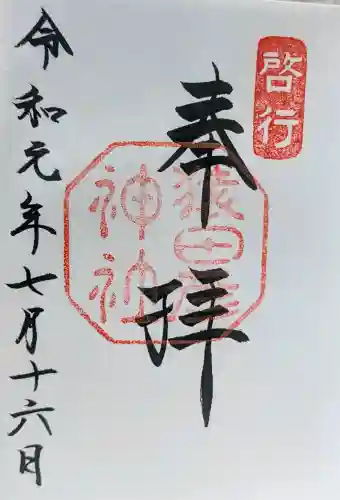 啓行
奉拝
猿田彦
神社
令和元年七月十六日